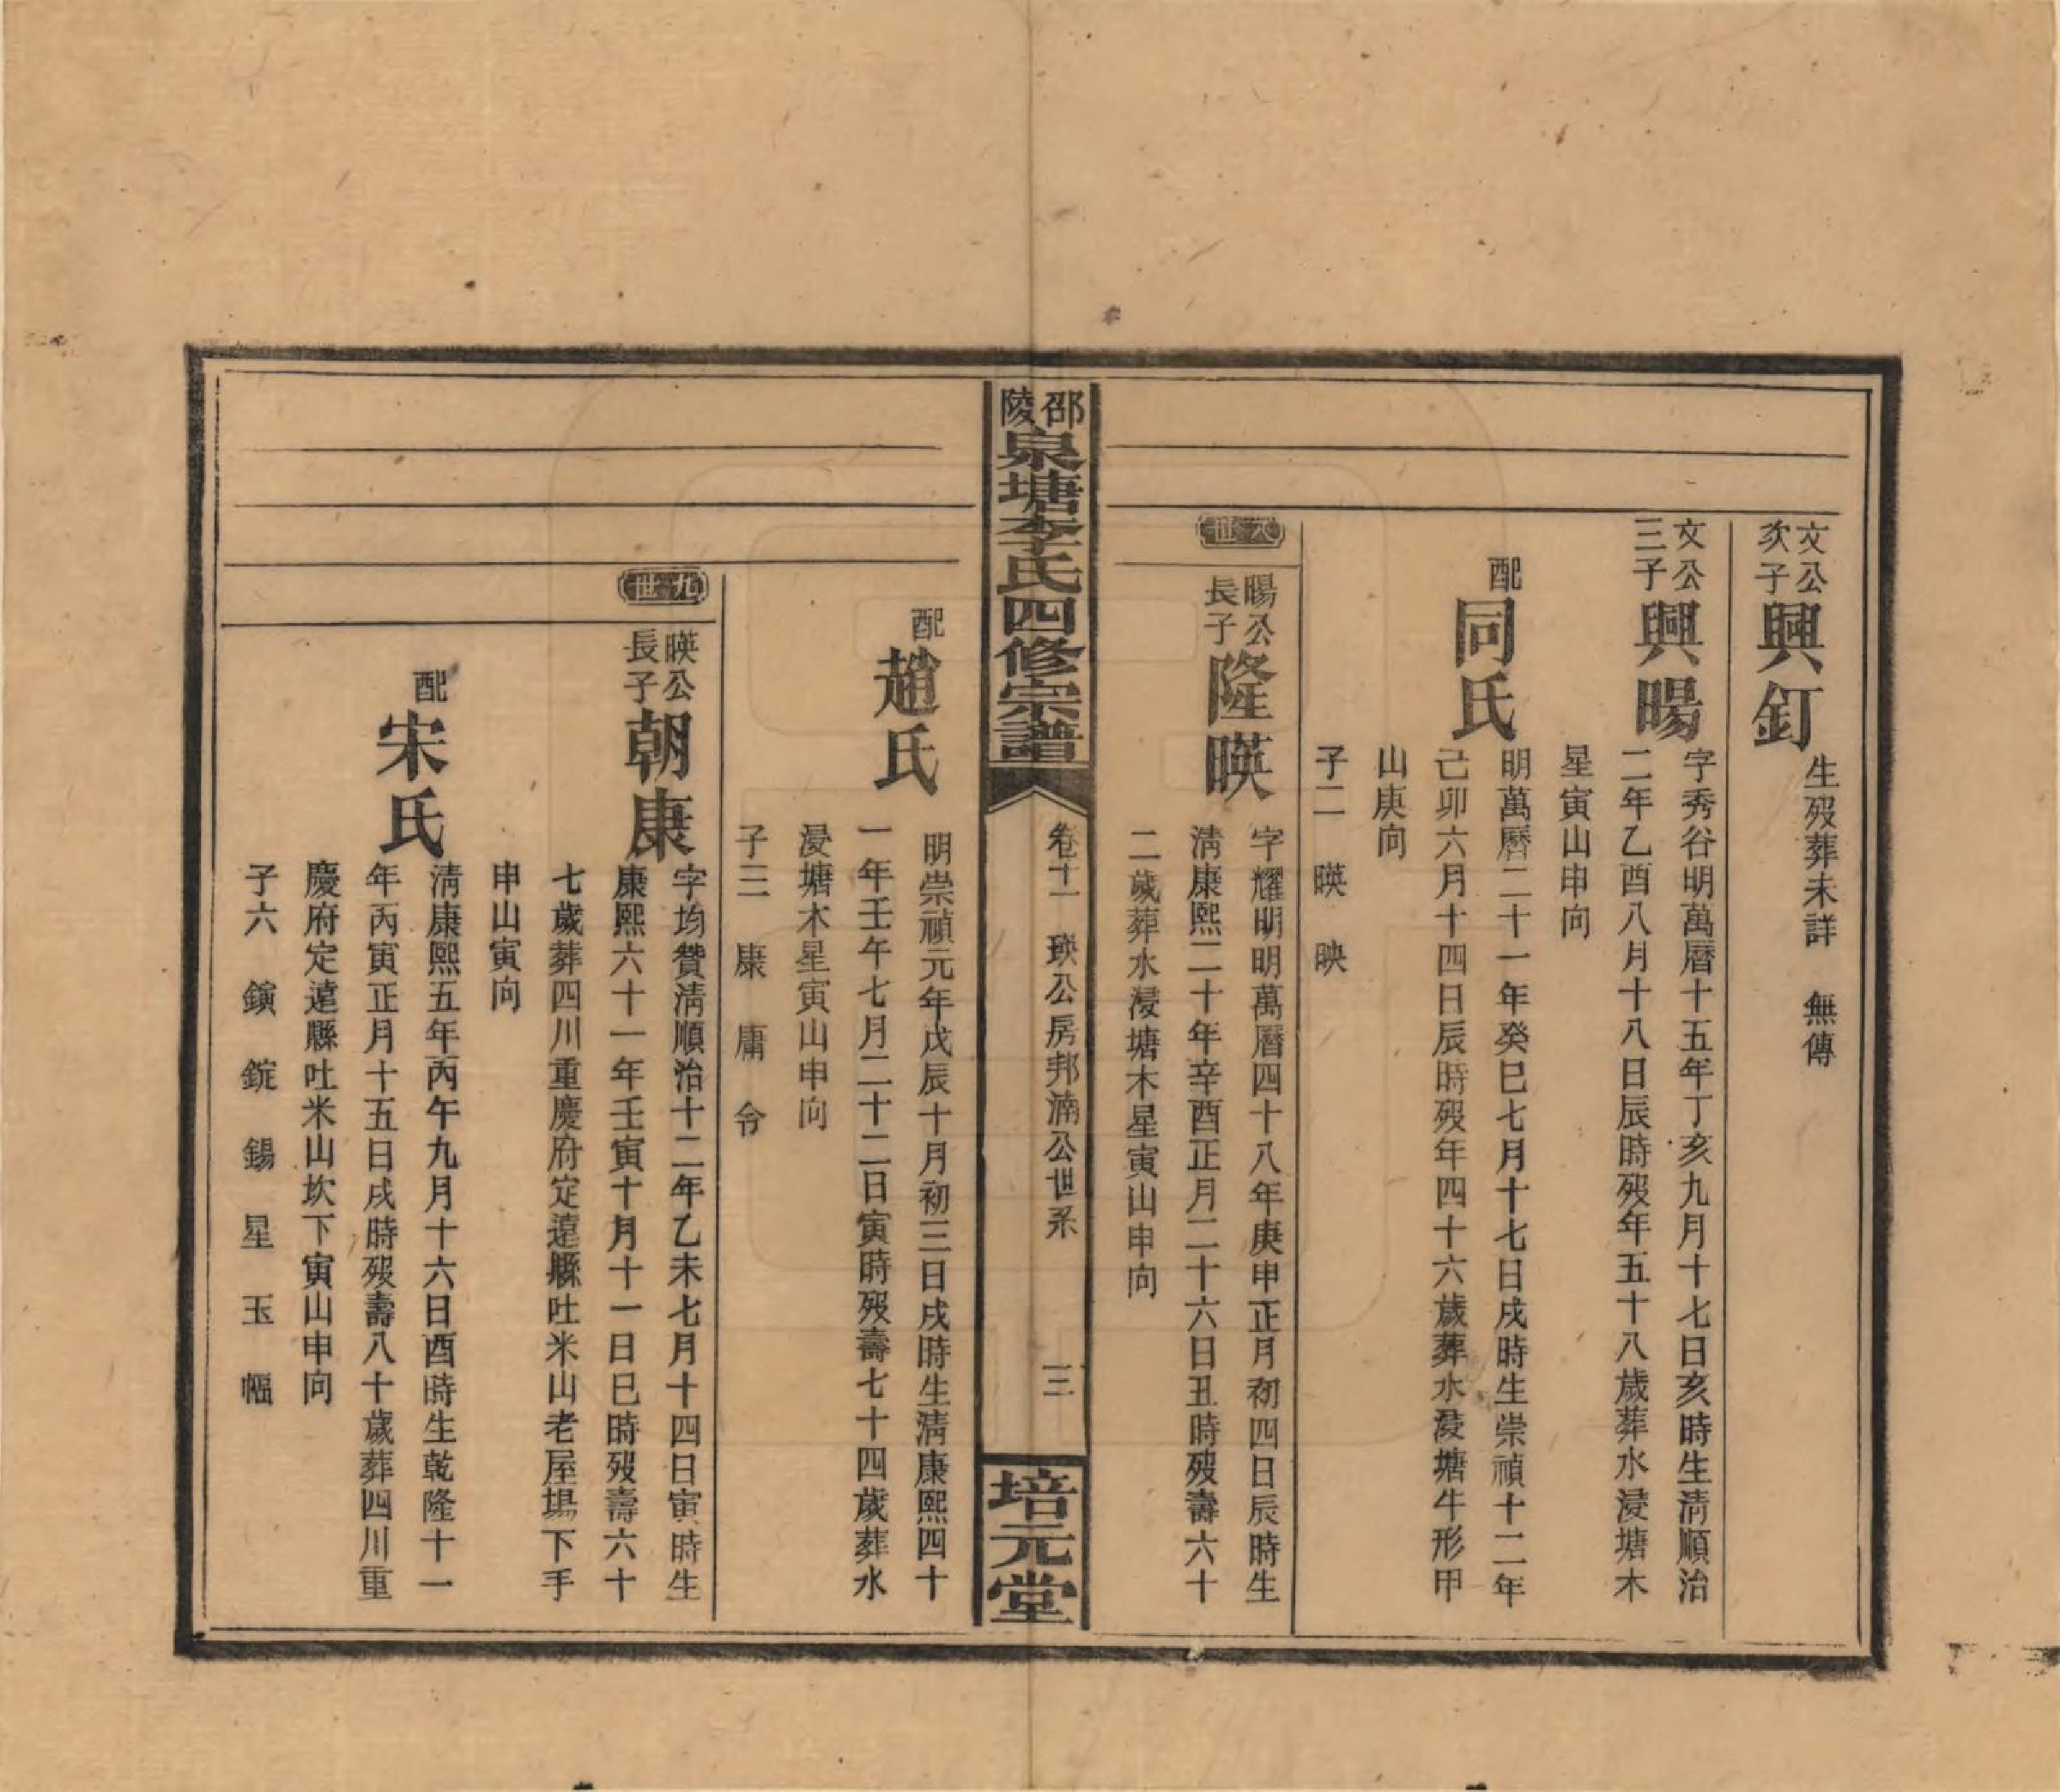 文公
次子
興釘
生歿葬未詳　無傳
文公
三子
興暘
字秀谷明萬曆十五年丁亥九月十七日亥時生清順治
二年乙酉八月十八日辰時歿年五十八歲葬水浸塘木
星寅山申向
配
同氏
明萬曆二十一年癸巳七月十七日戌時生崇禎十二年
己卯六月十四日辰時歿年四十六歲葬水浸塘牛形甲
山庚向
子二　暎　映
八世
暘公
長子
隆暎
字耀明明萬曆四十八年庚申正月初四日辰時生
清康熙二十年辛酉正月二十六日丑時歿壽六十
二歲葬水浸塘木星寅山申向
邵陵
泉塘李氏四修宗譜
卷十一　瑛公房邦湳公世系　三
培元堂
配
趙氏
明崇禎元年戊辰十月初三日戌時生清康熙四十
一年壬午七月二十二日寅時歿壽七十四歲葬水
浸塘木星寅山申向
子三　康　庸　令
九世
暎公
長子
朝康
字均贊清順治十二年乙未七月十四日寅時生
康熙六十一年壬寅十月十一日巳時歿壽六十
七歲葬四川重慶府定遠縣吐米山老屋場下手
申山寅向
配
宋氏
清康熙五年丙午九月十六日酉時生乾隆十一
年丙寅正月十五日戌時歿壽八十歲葬四川重
慶府定遠縣吐米山坎下寅山申向
子六　鎮　錠　錫　星　玉　幅